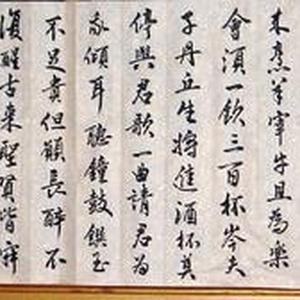 来烹羊宰牛且為樂
會須一飲三百杯岑夫
子丹丘生將進酒杯莫
停與君歌一曲請君為
我傾耳聽鐘鼓饌玉
不足貴但願長醉不
復醒古來聖賢皆寂